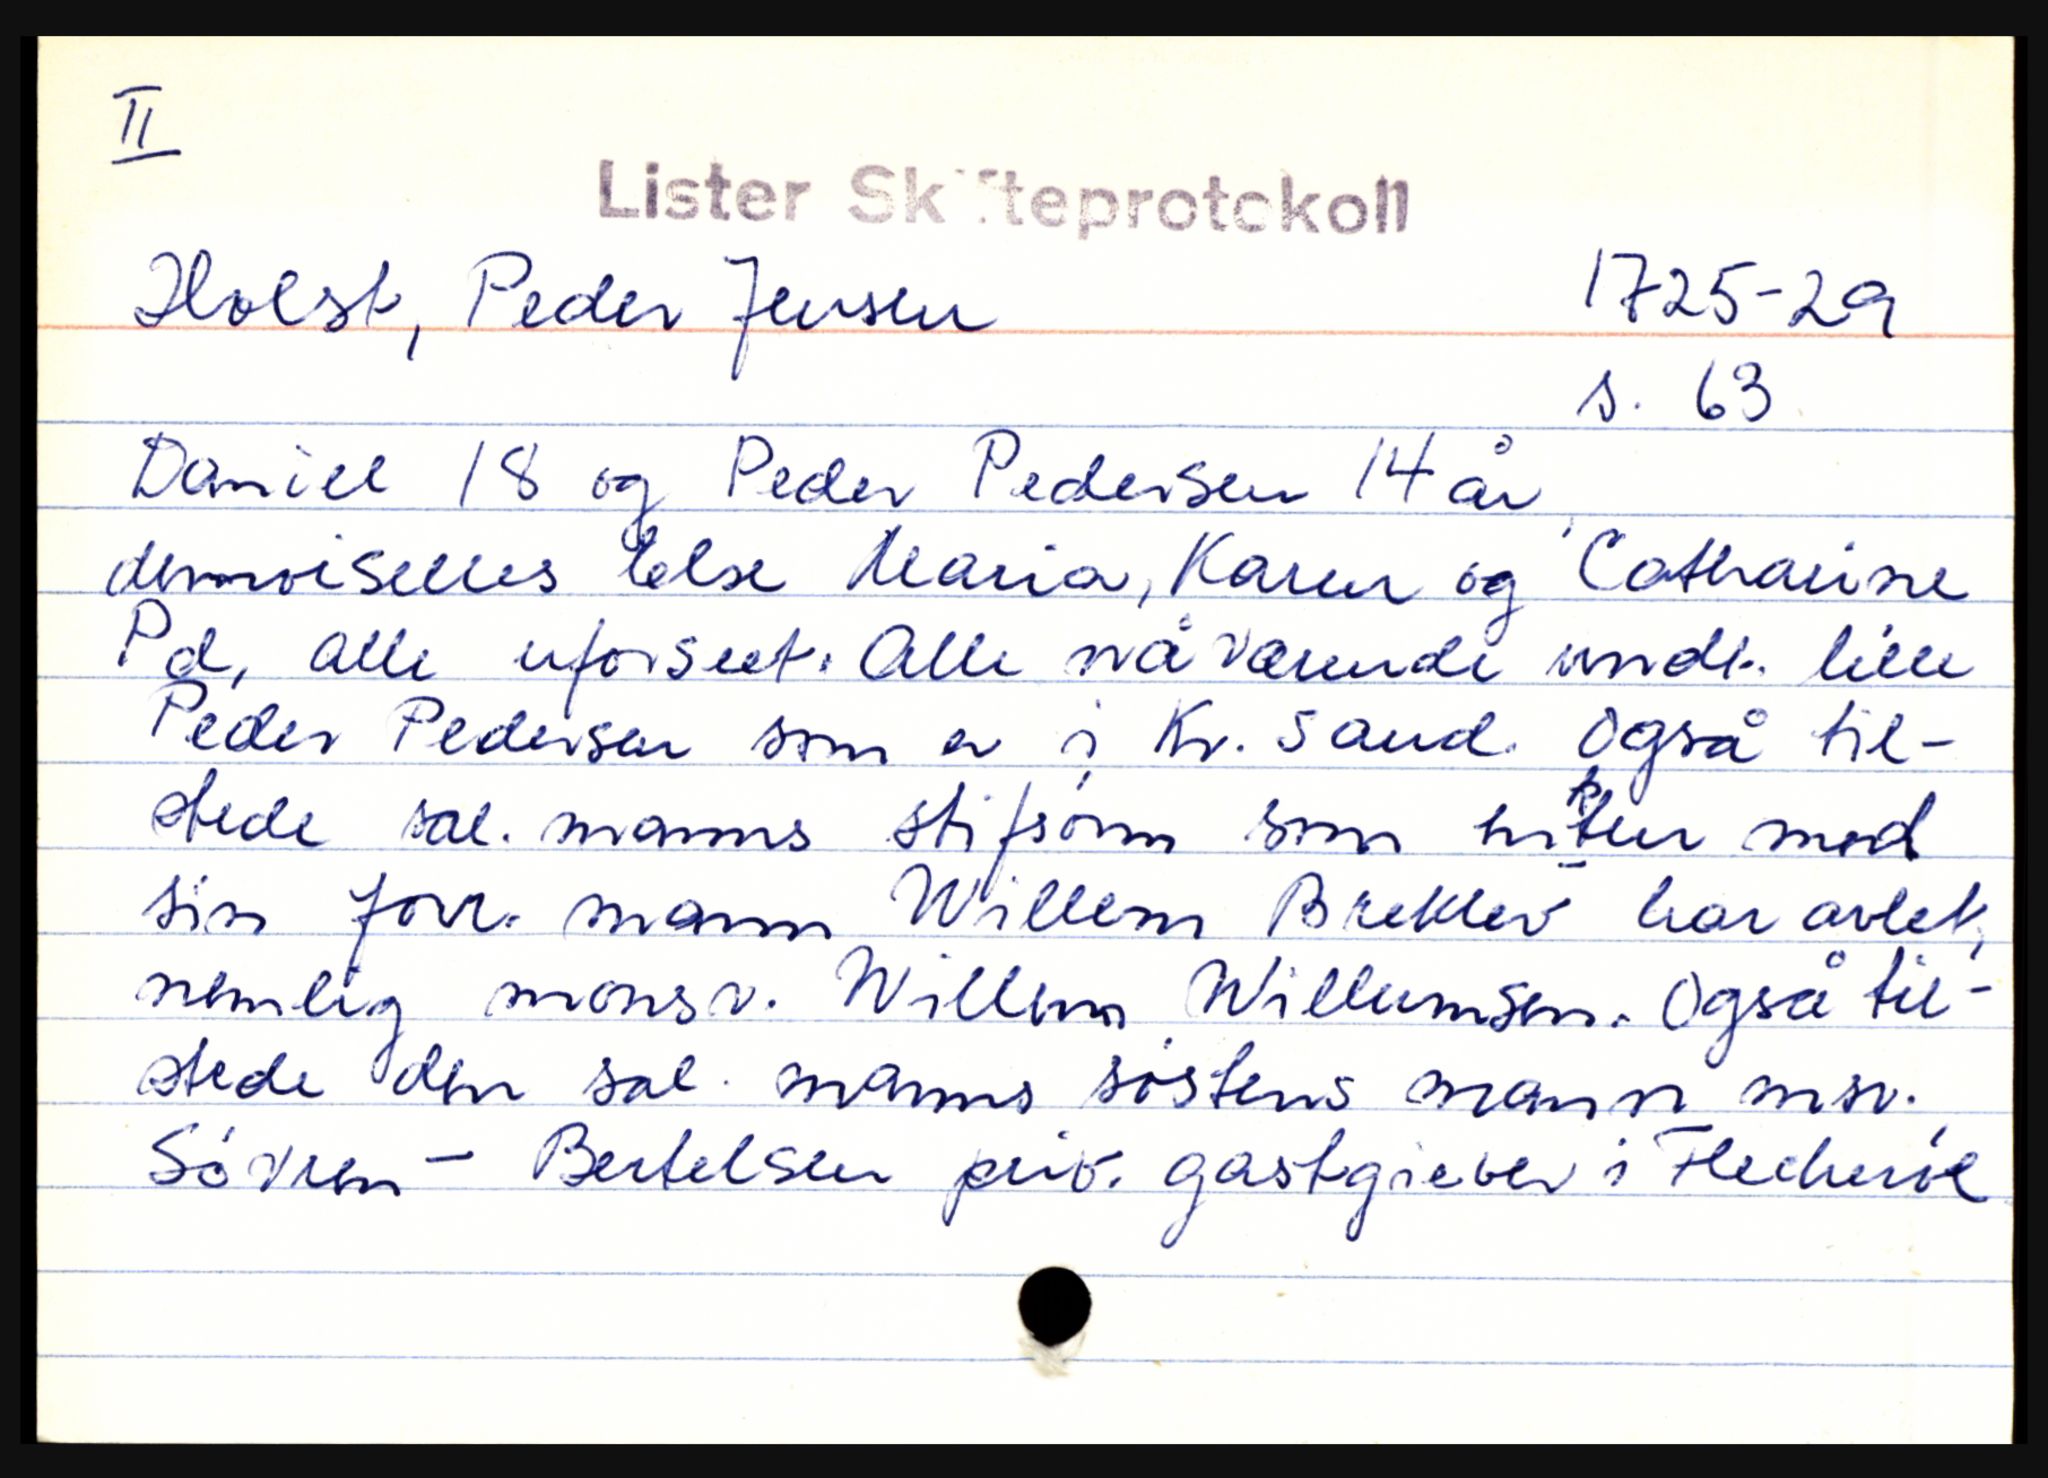 II
Lister Skifteprotokoll
Holst, Peder Jensen 1725-29
s. 63
Daniel 18 og Peder Pedersen 14 år,
demoiselles Else Maria, Karen og Catharine
Pd, alle uforseet. Alle nåværende undt. lille
Peder Pedersen som er i Kr. sand. Også til-
stede sal. manns stifsønn som enken med
sin forr. mann Willem Brekler har avlet,
nemlig monsr. Willem Willumsen. Også til-
stede den sal. manns søsters mann msr.
Søvren - Bertelsen priv. gastgiever i Flecherøe